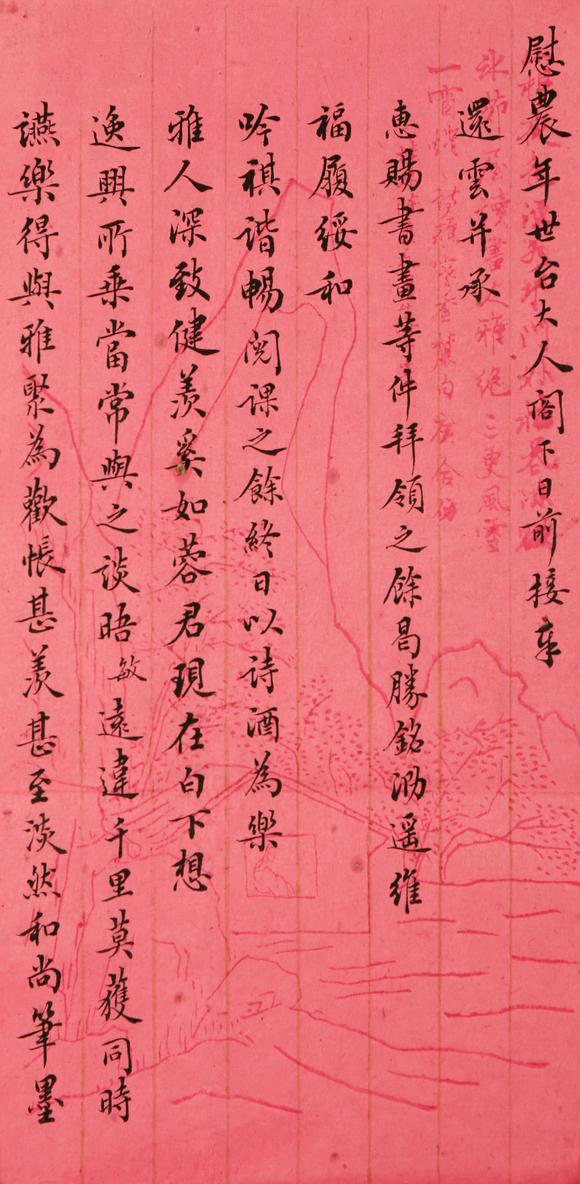 慰農年世台大人閣下日前接奉
還雲并承
惠賜書畫等件拜領之餘曷勝銘泐遥維
福履綏和
吟祺諧暢閱課之餘終日以詩酒為樂
雅人深致健羨奚如蓉君現在白下想
逸興所乗當常與之談晤敏遠違千里莫獲同時
讌樂得與雅聚為歡悵甚羨甚至淡然和尚筆墨